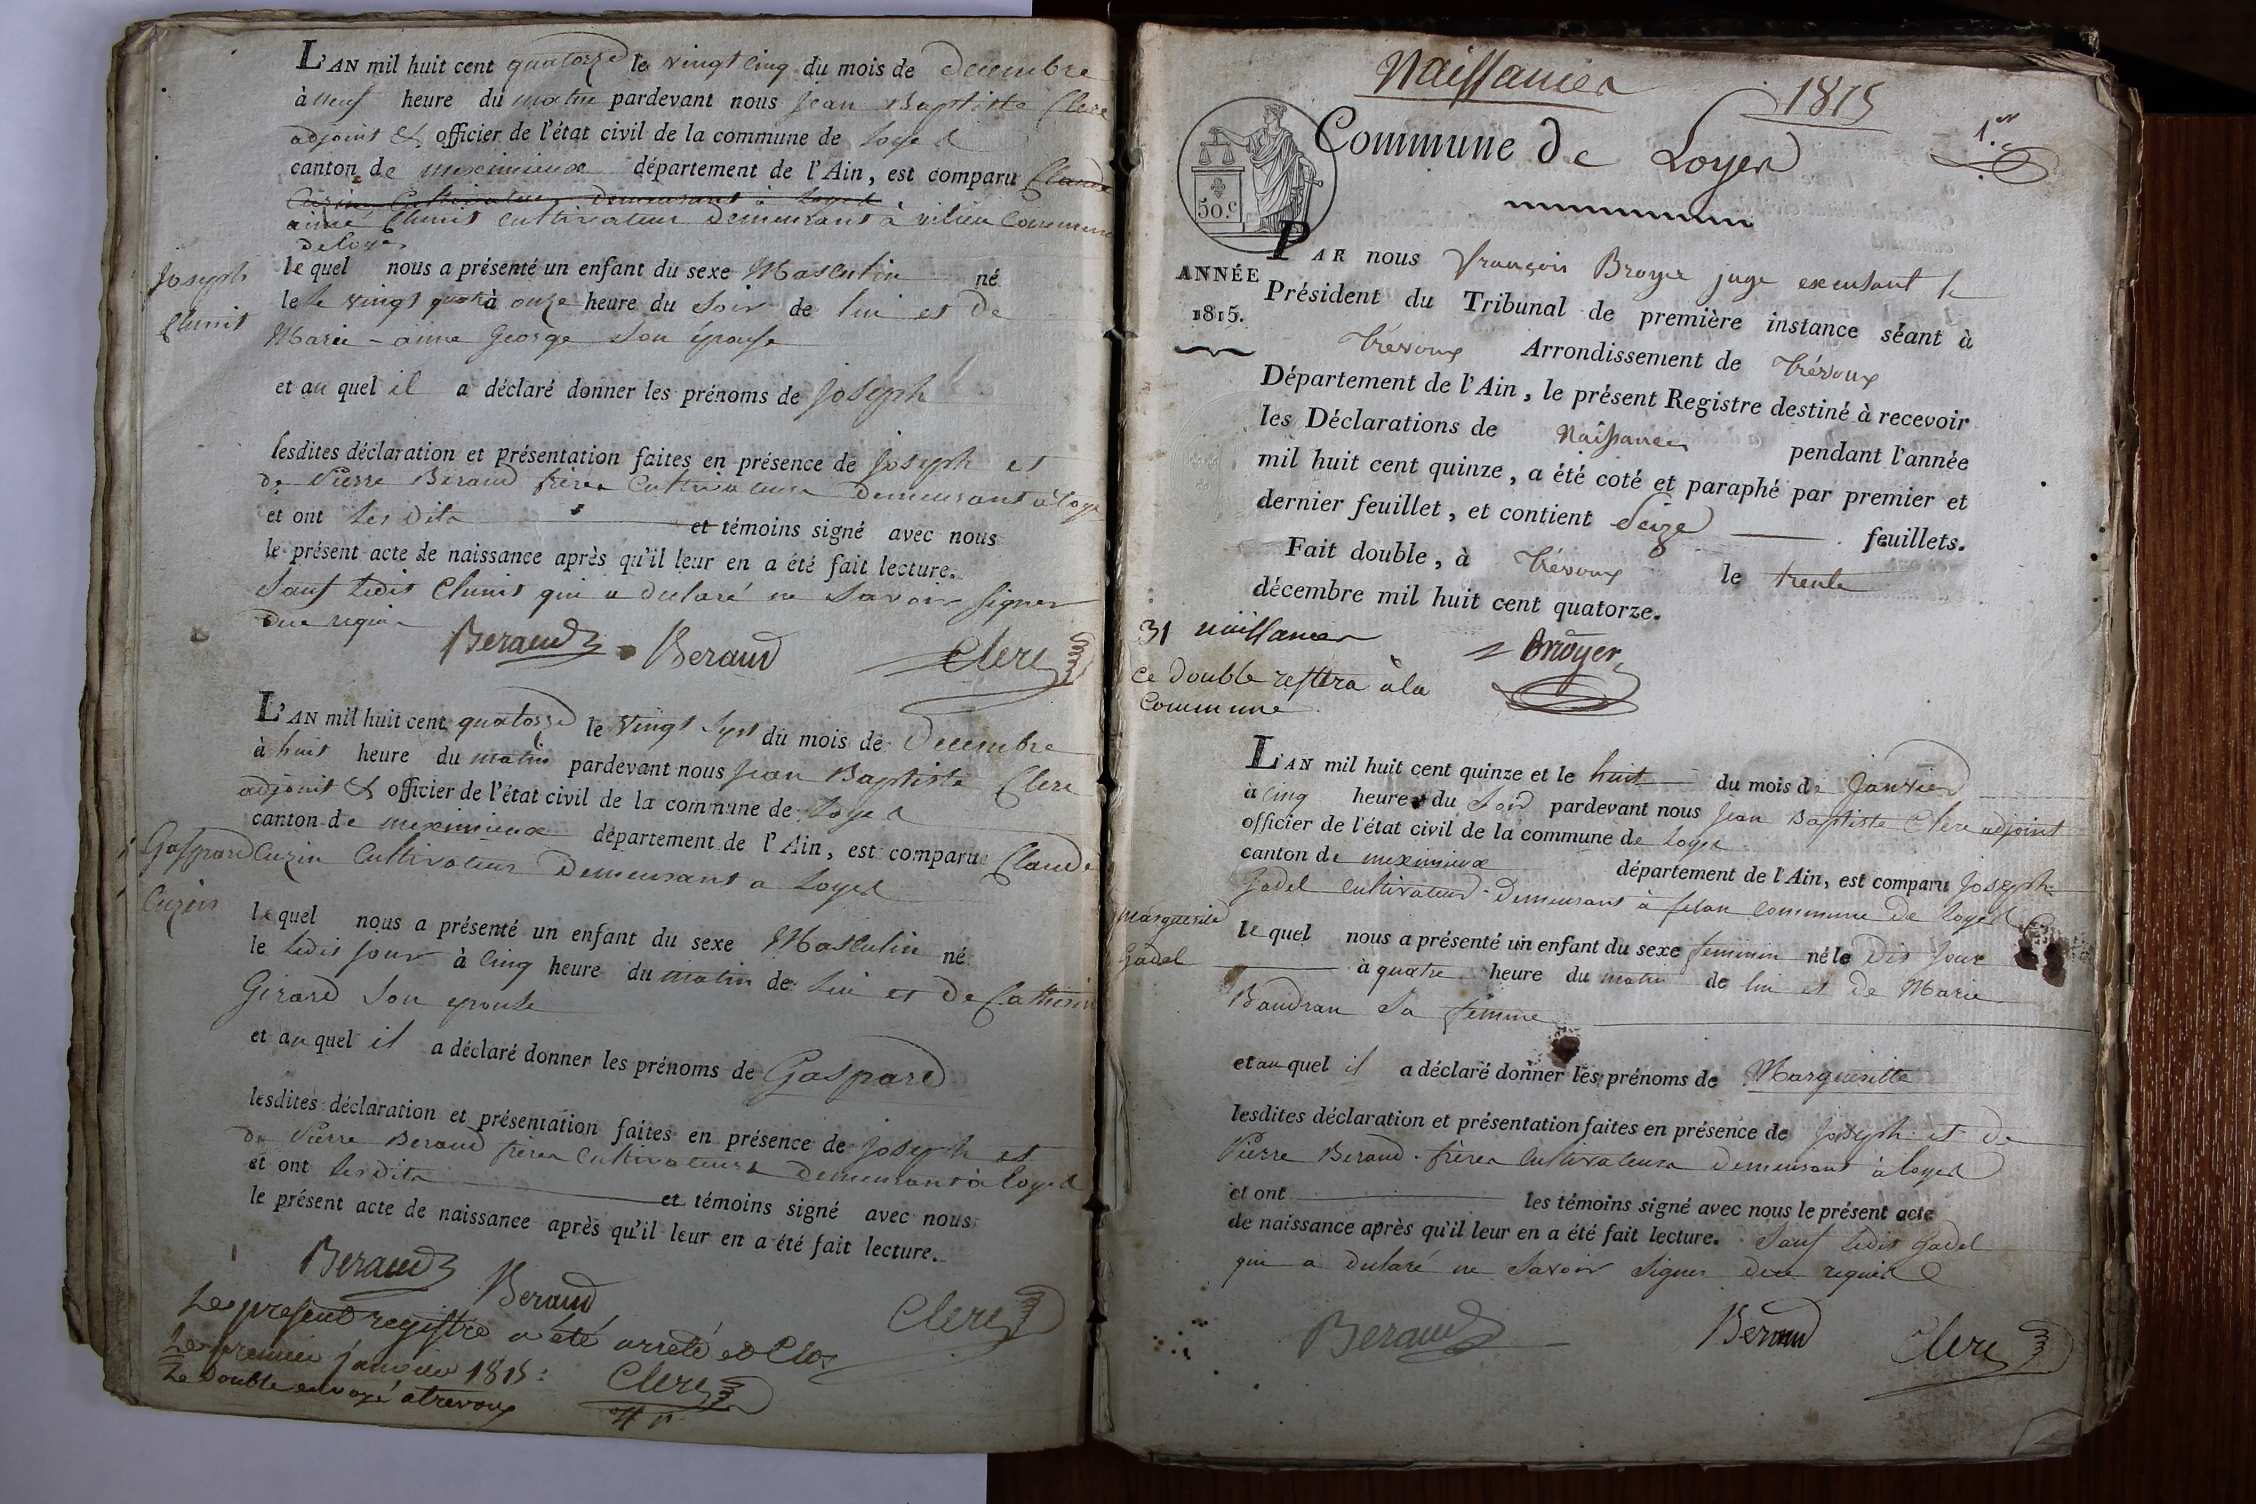 L'AN mil huit cent quatorze le vingt cinq du mois de decembre
à neuf heure du matin pardevant nous Jean Baptiste Clerc
adjoint & officier de l'état civil de la commune de Loyes
canton de meximieux département de l'Ain, est comparu Claude
Cuzin Cultivateur demeurant à Loyes
aimé Chunit cultivateur demeurant à vilieu Commune
de loyes
Joseph
Chunit
le quel nous a présenté un enfant du sexe Masculin né
le le vingt quatre à onze heure du soir de lui et de
Marie - anne George son épouse
et au quel il a déclaré donner les prénoms de Joseph
lesdites déclaration et présentation faites en présence de Joseph et
de Pierre Beraud frères Cultivateurs demeurant à loyes
et ont les dits et témoins signé avec nous
le présent acte de naissance après qu'il leur en a été fait lecture.
Sauf ledit Chunit qui a declaré ne Savoir Signer
due requis
Beraud Beraud Clerc
L'AN mil huit cent quatorze le vingt Sept du mois de Decembre
à huit heure du matin pardevant nous Jean Baptiste Clerc
adjoint & officier de l'état civil de la commune de Loyes
canton de meximieux département de l'Ain, est comparu Claude
Cuzin Cultivateur Demeurant a Loyes
Gaspard
Cuzin
lequel nous a présenté un enfant du sexe Masculin né
le ledit jour à cinq heure du matin de lui et de Catherin
Girard son epouse
et au quel il a déclaré donner les prénoms de Gaspard
lesdites déclaration et présentation faites en présence de Joseph et
de Pierre Beraud frères Cultivateurs demeurant à loyes
et ont lesdits et témoins signé avec nous
le présent acte de naissance après qu'il leur en a été fait lecture.
Beraud Beraud Clerc
Le present registre a été arreté et Clos
Le premier janvier 1815:
Le double envoyé a trevoux Clerc
Naissances 1815
1.er
Commune de Loyes
50.c
ANNÉE
1815.
PAR nous François Broyer juge exerçant le
Président du Tribunal de première instance séant à
Trévoux Arrondissement de Trévoux
Département de l'Ain, le présent Registre destiné à recevoir
les Déclarations de Naissances pendant l'année
mil huit cent quinze, a été coté et paraphé par premier et
dernier feuillet, et contient Seize feuillets.
Fait double, à Trévoux le trente
décembre mil huit cent quatorze.
31 naissances
Broyer
Ce double restera à la
Commune
L'AN mil huit cent quinze et le huit du mois de Janvier
à cinq heure du Soir pardevant nous Jean Baptiste Clerc adjoint
officier de l'état civil de la commune de Loyes
canton de meximieux département de l'Ain, est comparu Joseph
Gadel cultivateur demeurant à felan commune de Loyes
Marguerite
Gadel
le quel nous a présenté un enfant du sexe feminin né le dit jour
à quatre heure du matin de lui et de Marie
Baudran Sa femme
et au quel il a déclaré donner les prénoms de Margueritte
lesdites déclaration et présentation faites en présence de Joseph et de
Pierre Beraud frères Cultivateurs demeurant à loyes
et ont les témoins signé avec nous le présent acte
de naissance après qu'il leur en a été fait lecture. Sauf ledit Gadel
qui a declaré ne Savoir Signer due requis
Beraud Beraud Clerc